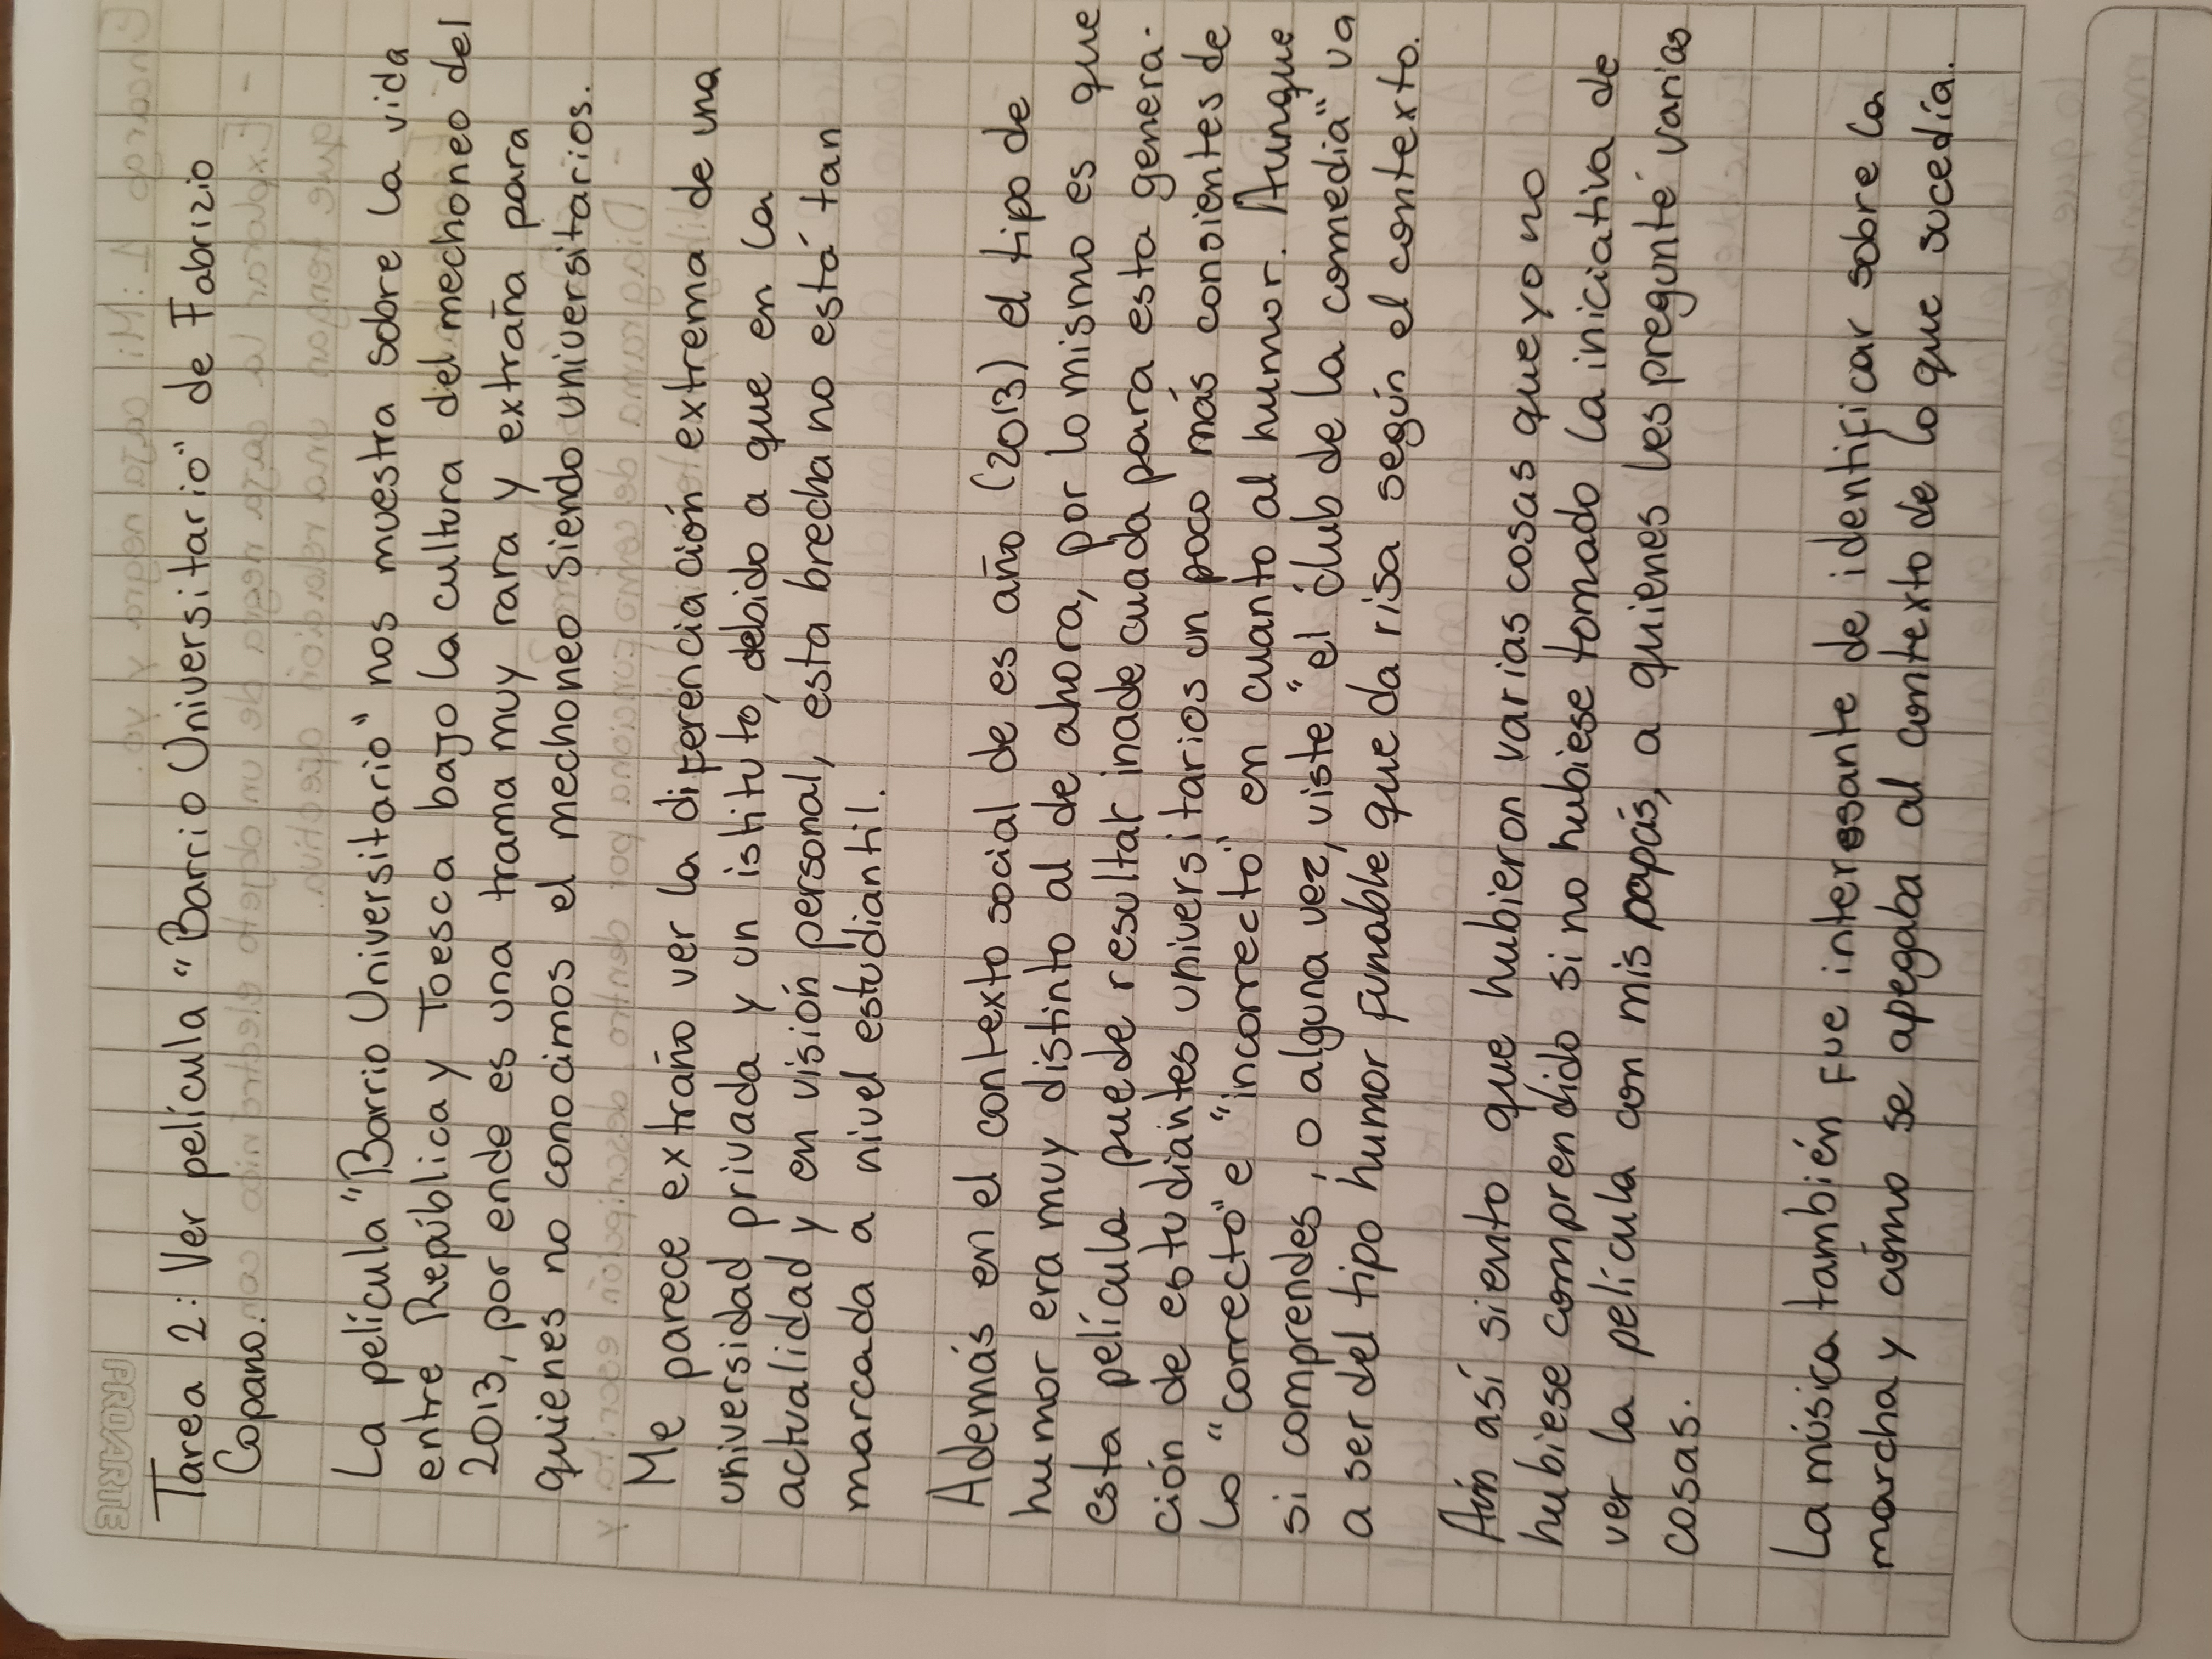 PROARTE
Tarea 2: Ver película "Barrio Universitario" de Fabrizio
Copano.
La película "Barrio Universitario" nos muestra sobre la vida
entre República y Toesca bajo la cultura del mechoneo del
2013, por ende es una trama muy rara y extraña para
quienes no conocimos el mechoneo siendo universitarios.
Me parece extraño ver la diferenciación extrema de una
universidad privada y un istituto, debido a que en la
actualidad y en visión personal, esta brecha no está tan
marcada a nivel estudiantil.
Además en el contexto social de es año (2013) el tipo de
humor era muy distinto al de ahora, por lo mismo es que
esta película puede resultar inadecuada para esta genera-
ción de estudiantes universitarios un poco más consientes de
lo "correcto" e "incorrecto" en cuanto al humor. Aunque
si comprendes, o alguna vez, viste "el club de la comedia" va
a ser del tipo humor funable que da risa según el contexto.
Aún así siento que hubieron varias cosas que yo no
hubiese comprendido si no hubiese tomado la iniciativa de
ver la película con mis papás, a quienes les pregunté varias
cosas.
La música también fue interesante de identificar sobre la
marcha y cómo se apegaba al contexto de lo que sucedía.